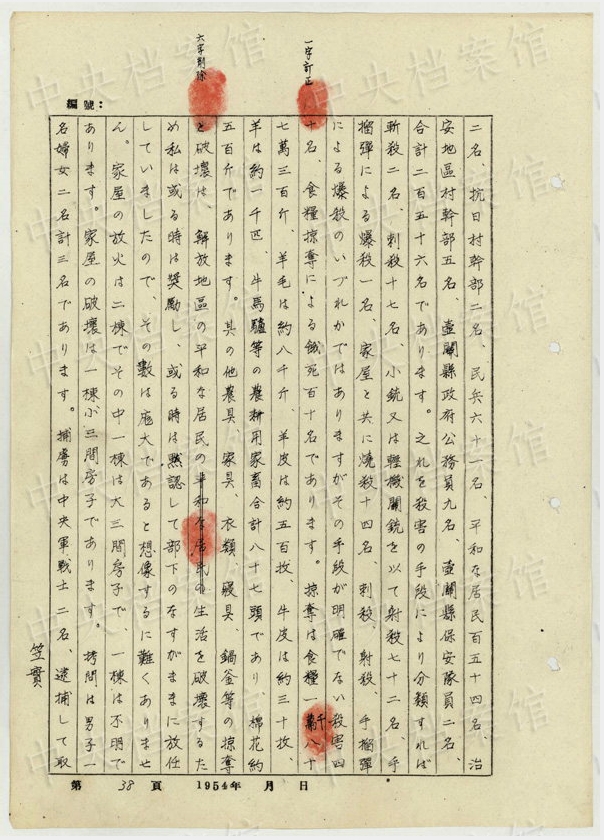 一字訂正
六字削除
編號：
二名、抗日村幹部二名、民兵六十一名、平和な居民百五十四名、治
安地區村幹部五名、壺關縣政府公務員九名、壺關縣保安隊員二名、
合計二百五十六名であります。之れを殺害の手段により分類すれば
斬殺二名、刺殺十七名、小銃又は輕機關銃を以て射殺七十二名、手
榴彈による爆殺一名、家屋と共に燒殺十四名、刺殺、射殺、手榴彈
による爆殺のいづれかではありますがその手段が明確でない殺害四
十名、食糧掠奪による餓死百十名であります。掠奪は食糧一千八十
七萬三百斤、羊毛は約八千斤、羊皮は約五百枚、牛皮は約三十枚、
羊は約一千匹、牛馬驢等の農耕用家畜合計八十七頭であり、棉花約
五百斤であります。其の他農具、家具、衣類、寢具、鍋釜等の掠奪
と破壞は、解放地區の平和な居民の生活を破壞するた
め私は或る時は奬勵し、或る時は默認して部下のなすがまゝに放任
していましたので、その數は厖大であると想像するに難くありませ
ん。家屋の放火は二棟でその中一棟は大三間房子で、一棟は不明で
あります。家屋の破壞は一棟小三間房子であります。拷問は男子一
名婦女二名計三名であります。捕虜は中央軍戰士二名、逮捕して取
笠實
第 38 頁 1954年 月 日
中央档案馆